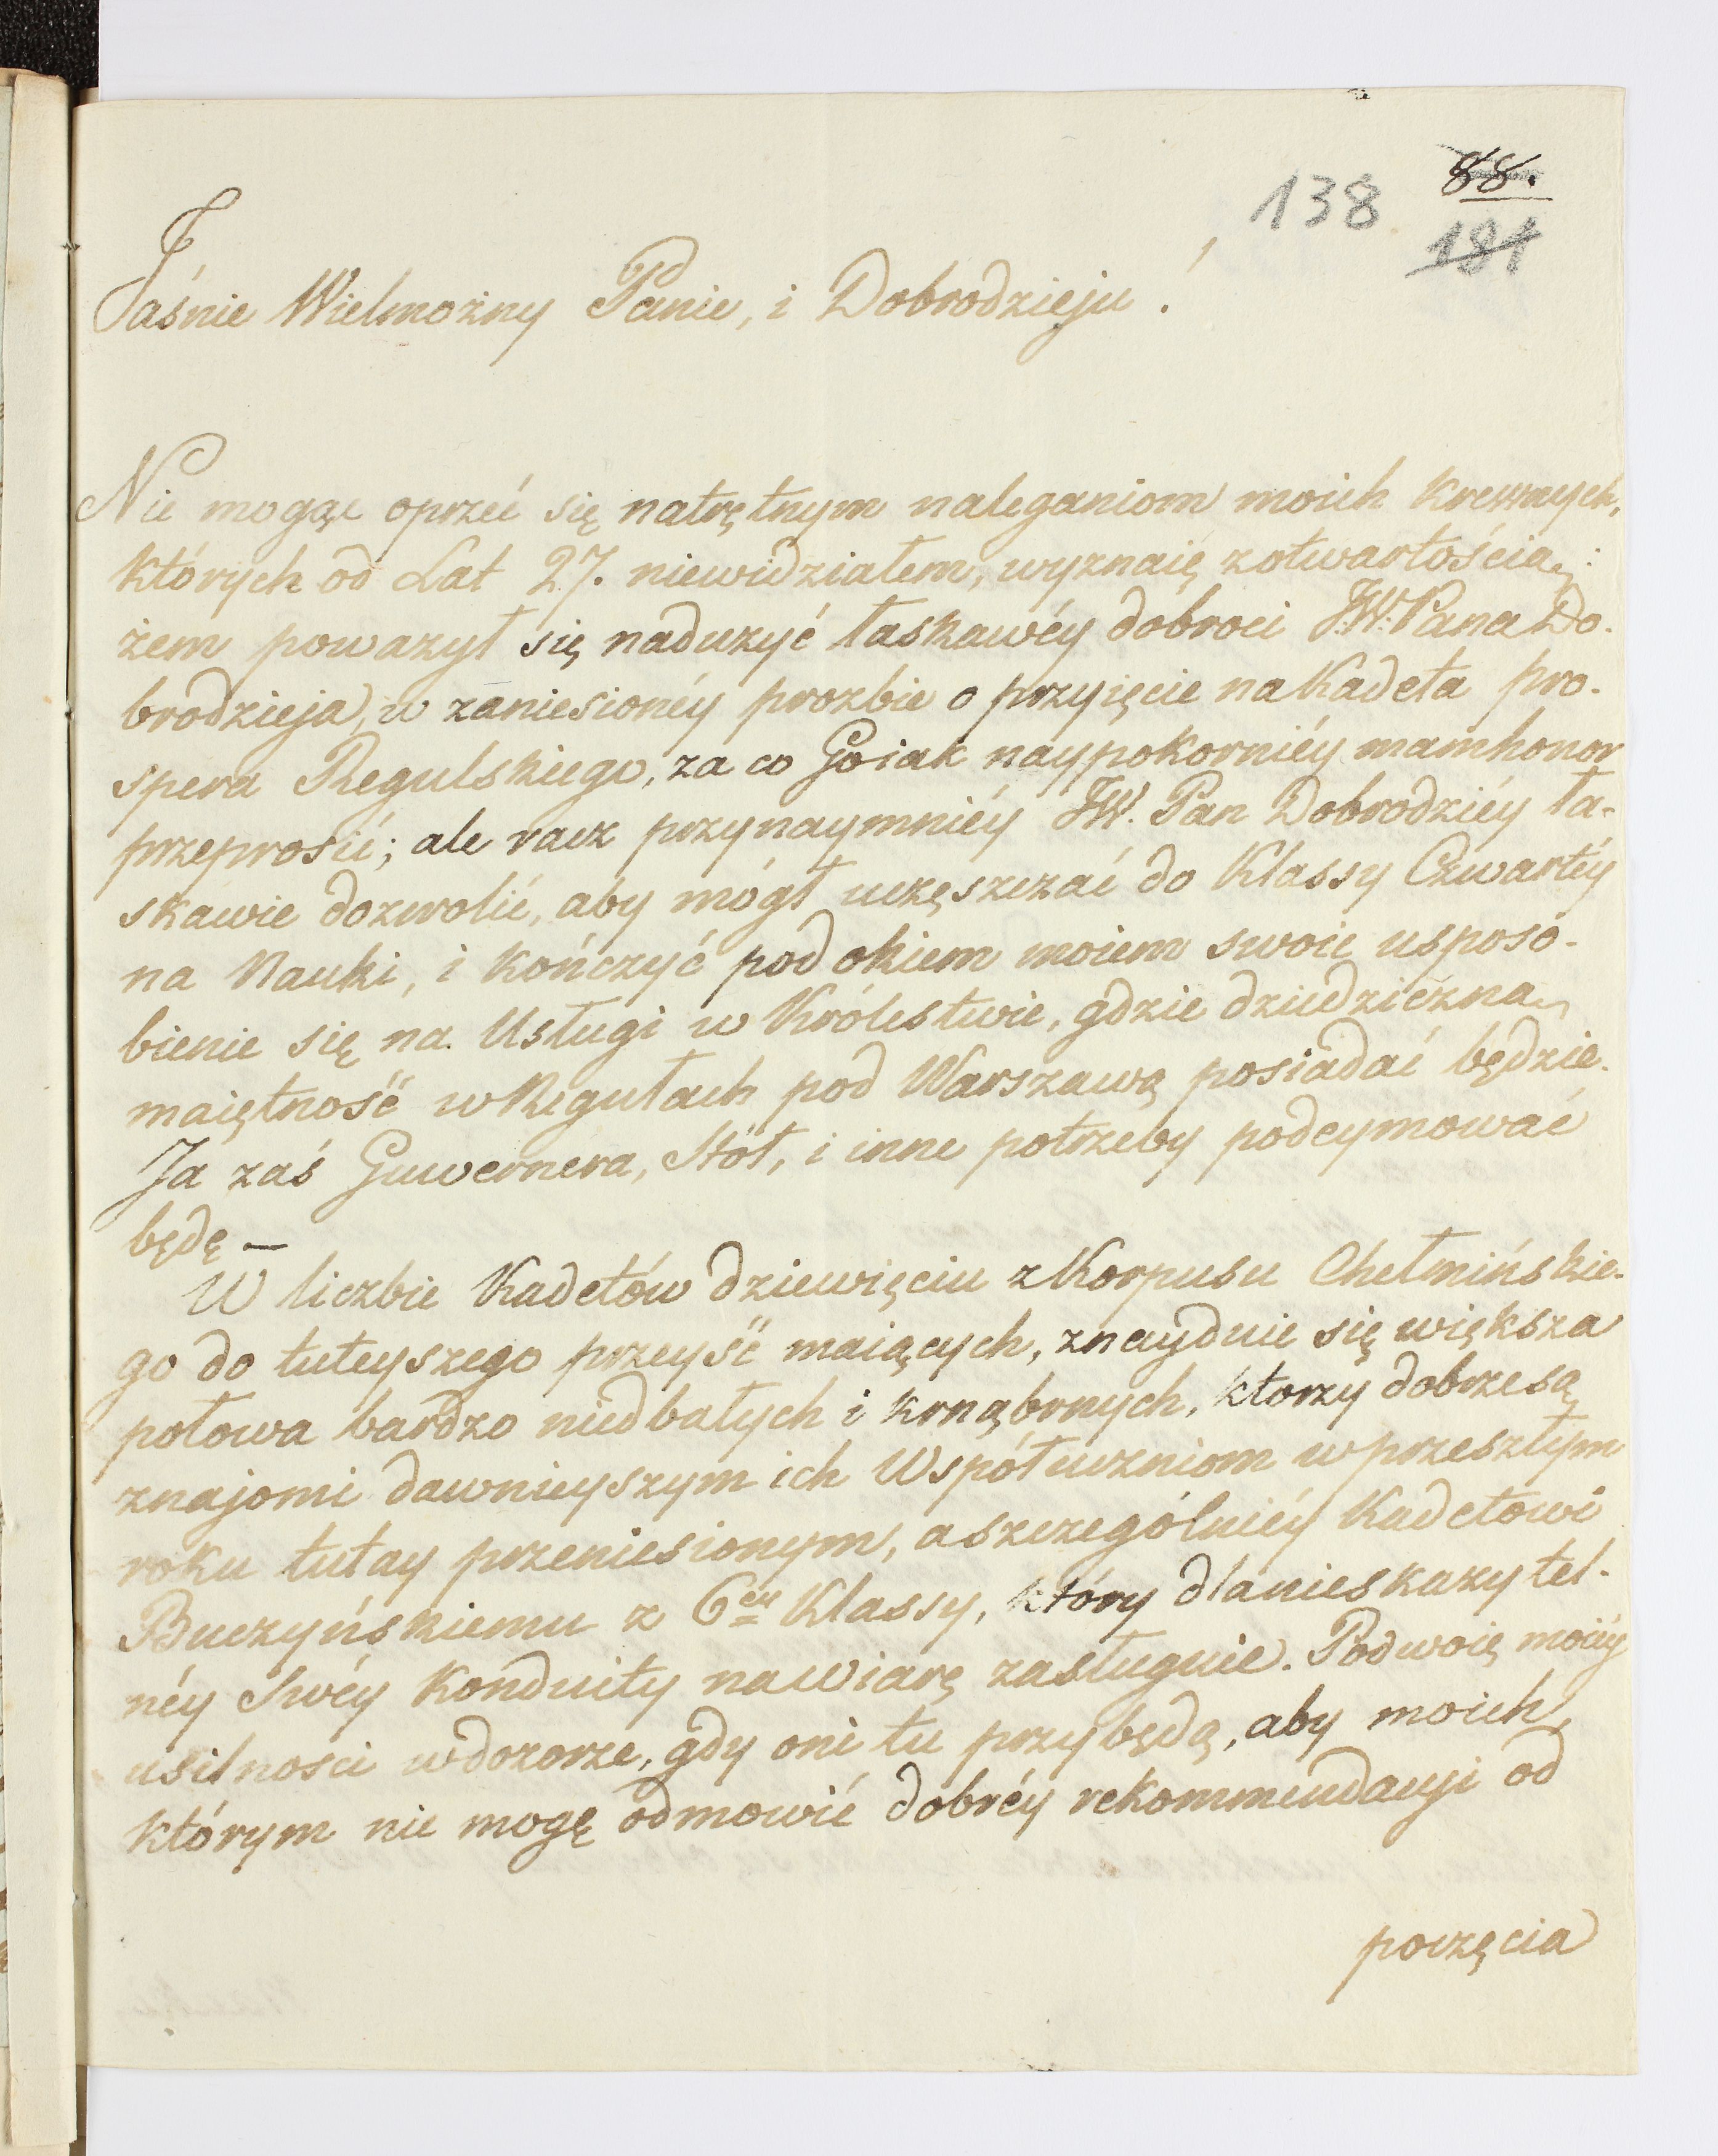 88.
138
181
Jaśnie Wielmożny Panie, i Dobrodzieju!
Nie mogąc oprzeć się natrętnym naleganiom moich krewnych,
których od Lat 27. niewidziałem, wyznaię zotwartością:
żem poważył się nadużyć łaskawéy dobroci J.W. Pana Do-
brodzieja, w zaniesionéy prozbie o przyięcie na Kadeta pro-
spera Regulskiego, za co Go iak naypokorniéy mamhonor
przeprosić; ale racz przynaymniéy JW. Pan Dobrodziéy ła-
skawie dozwolić, aby mógł uczęszczać do Klassy Czwartéy
na Nauki, i kończyć pod okiem moiem swoie usposo-
bienie się na Usługi w Królestwie, gdzie dziedziczną
maiętność w Regułach pod Warszawą posiadać będzie.
Ja zaś Guwernera, Stół, i inne potrzeby podeymować
będę —
W liczbie Kadetów dziewięciu z Korpusu Chełmińskie-
go do tuteyszego przeyść maiących, znayduie się większa
połowa bardzo niedbałych i krnąbrnych, ktorzy dobrze są
znajomi dawnieyszym ich Współuczniom w przeszłym
roku tutay przeniesionym, a szczególniéy Kadetowi
Buczyńskiemu z 6éy Klassy, który dla nieskazytel-
néy Swéy Konduity na wiarę zasługuie. Podwoię moiéy
usilności w dozorze, gdy oni tu przybędą, aby moich,
którym nie mogę odmowić dobréy rekommendacyi od
poczęcia